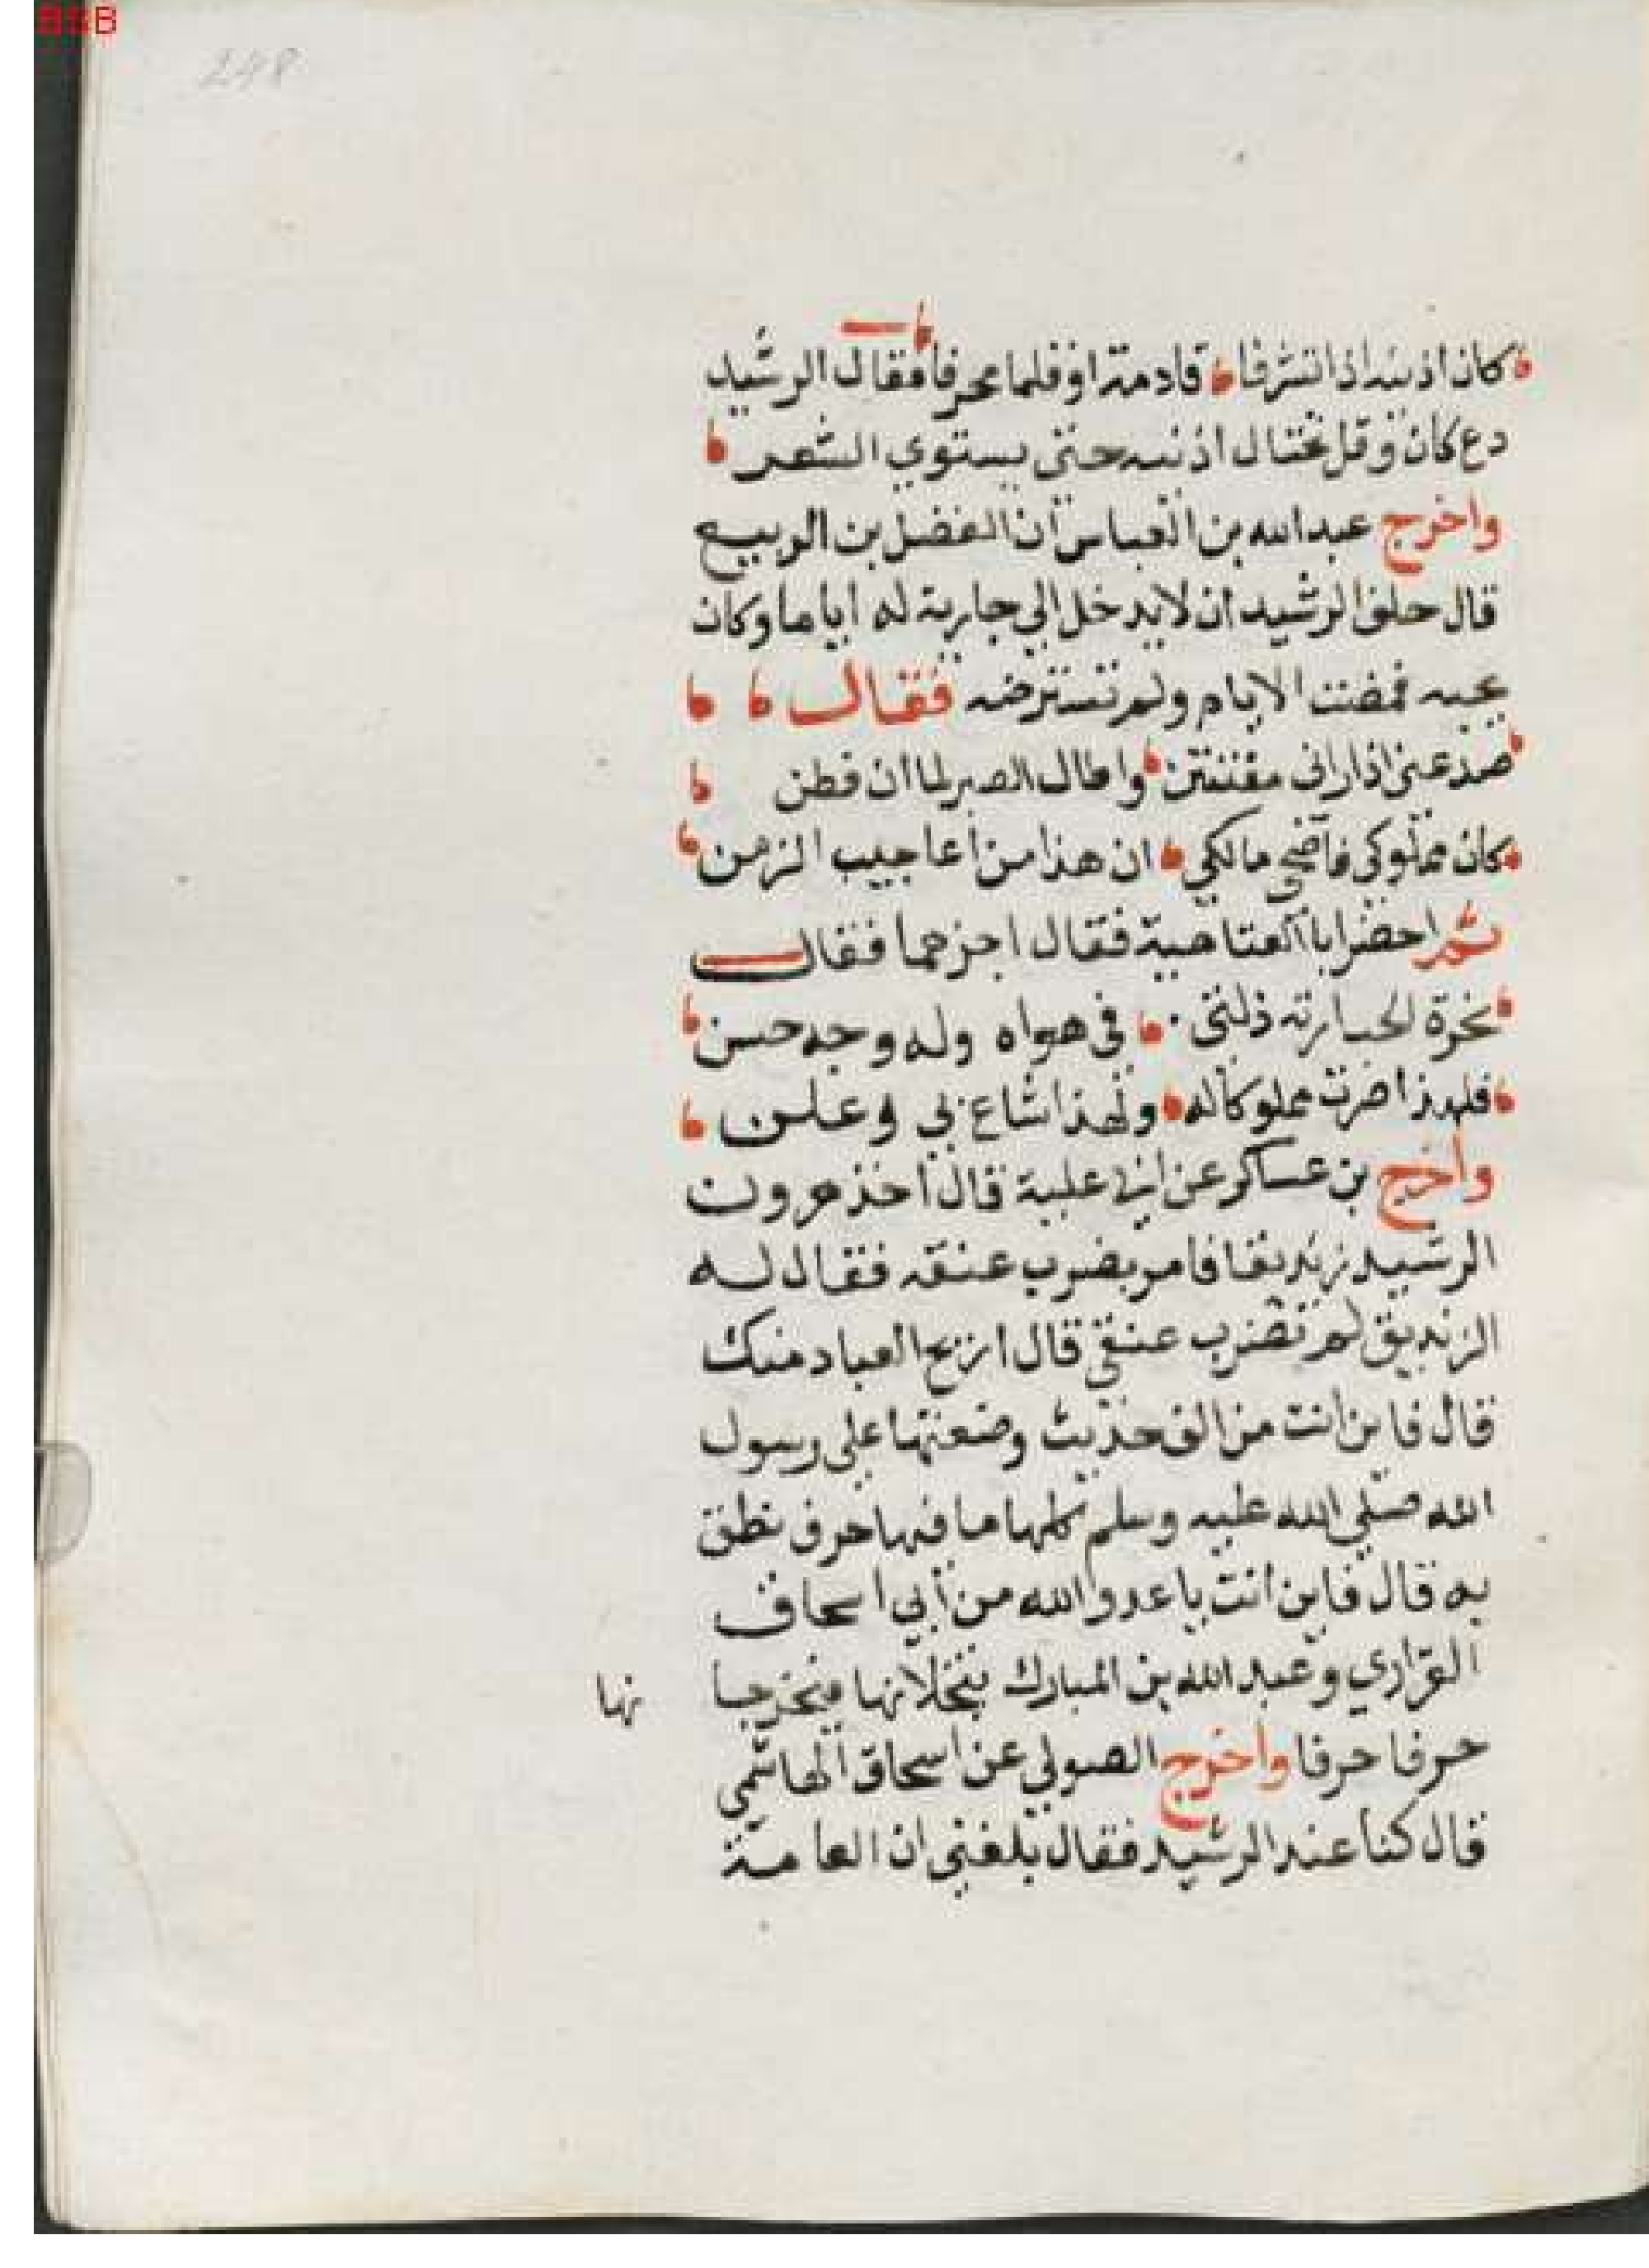 BSB
248
كان اذنيه اذا تشرفا قادمة او قلما محرفا فقال الرشيد
دع كان وقل تختال اذنيه حتى يستوي الشعر
واخرج عبد الله بن العباس ان الفضل بن الربيع
قال حلف الرشيد ان لا يدخل الي جارية له اياما وكان
يحبه فمضت الايام ولم تسترضه فقال
صد عني اذا راني مفتتن واطال الصبر لما ان فطن
كان مملوكي فاضحي مالكي ان هذا من اعاجيب الزمن
ثم احضر ابا العتاهية فقال اجزهما فقال
عزة الحب ارته ذلتي في هواه وله وجه حسن
فلهذا صرت مملوكا له ولهذا شاع بي وعلن
واخرج بن عساكر عن ابن علية قال اخذ هرون
الرشيد زنديقا فامر بضرب عنقه فقال له
الزنديق لم تضرب عنقي قال اريح العباد منك
قال فاين انت من الف حديث وضعتها علي رسول
الله صلي الله عليه وسلم كلها ما فيها حرف نطق
به قال فاين انت يا عدو الله من أبي اسحاق
الفزاري وعبد الله بن المبارك ينخلانها فيخرجا نها
حرفا حرفا واخرج الصولي عن اسحاق الهاشمي
قال كنا عند الرشيد فقال بلغني ان العامة